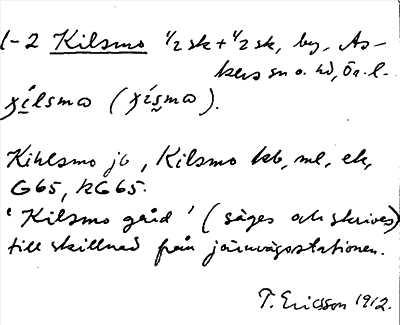 1-2 Kilsmo ½ sk + ½ sk, by, As-
kers sn o. hd, Ör. l.
χílsmω (χísmω).
Kihlsmo jb, Kilsmo kb, ml, ek,
G65, RG65.
'Kilsmo gård' (säges och skrives)
till skillnad från järnvägsstationen.
T. Ericsson 1912.